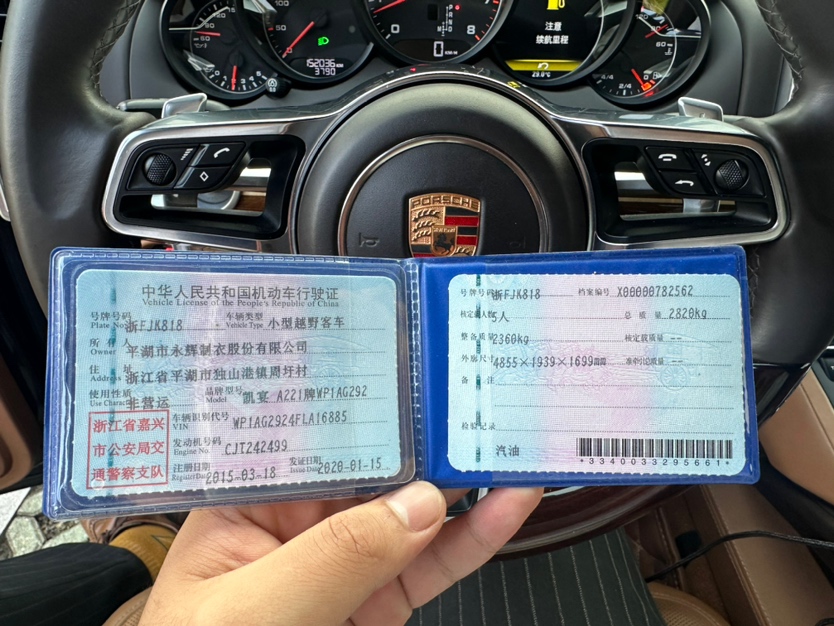 注意
续航里程
152036
3790
29.0℃
PORSCHE
中华人民共和国机动车行驶证
Vehicle License of the People's Republic of China
号牌号码 浙FJK818 车辆类型 小型越野客车
Plate No. Vehicle Type
所有人 平湖市永辉制衣股份有限公司
Owner
住址 浙江省平湖市独山港镇周圩村
Address
使用性质 非营运 品牌型号 凯宴 A221牌WP1AG292
Use Character
浙江省嘉兴
市公安局交
通警察支队
车辆识别代号 WP1AG2924FLA16885
VIN
发动机号码 CJT242499
Engine No.
注册日期 2015-03-18 发证日期 2020-01-15
Register Date Issue Date
号牌号码 浙FJK818 档案编号 X00000782562
核定载人数 5人 总质量 2820kg
整备质量 2360kg 核定载质量 --
外廓尺寸 4855×1939×1699mm 准牵引总质量 --
备注
检验记录
汽油
*3340033295661*